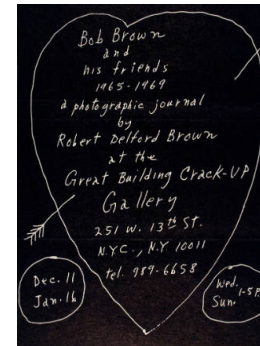 Bob Brown
and
his friends
1965-1969
a photographic journal
by
Robert Delford Brown
at the
Great Building Crack-UP
Gallery
251 W. 13th ST.
N.Y.C., N.Y 10011
tel. 989-6658
Dec. 11
Jan. 16
Wed.
Sun.
1-5 P.